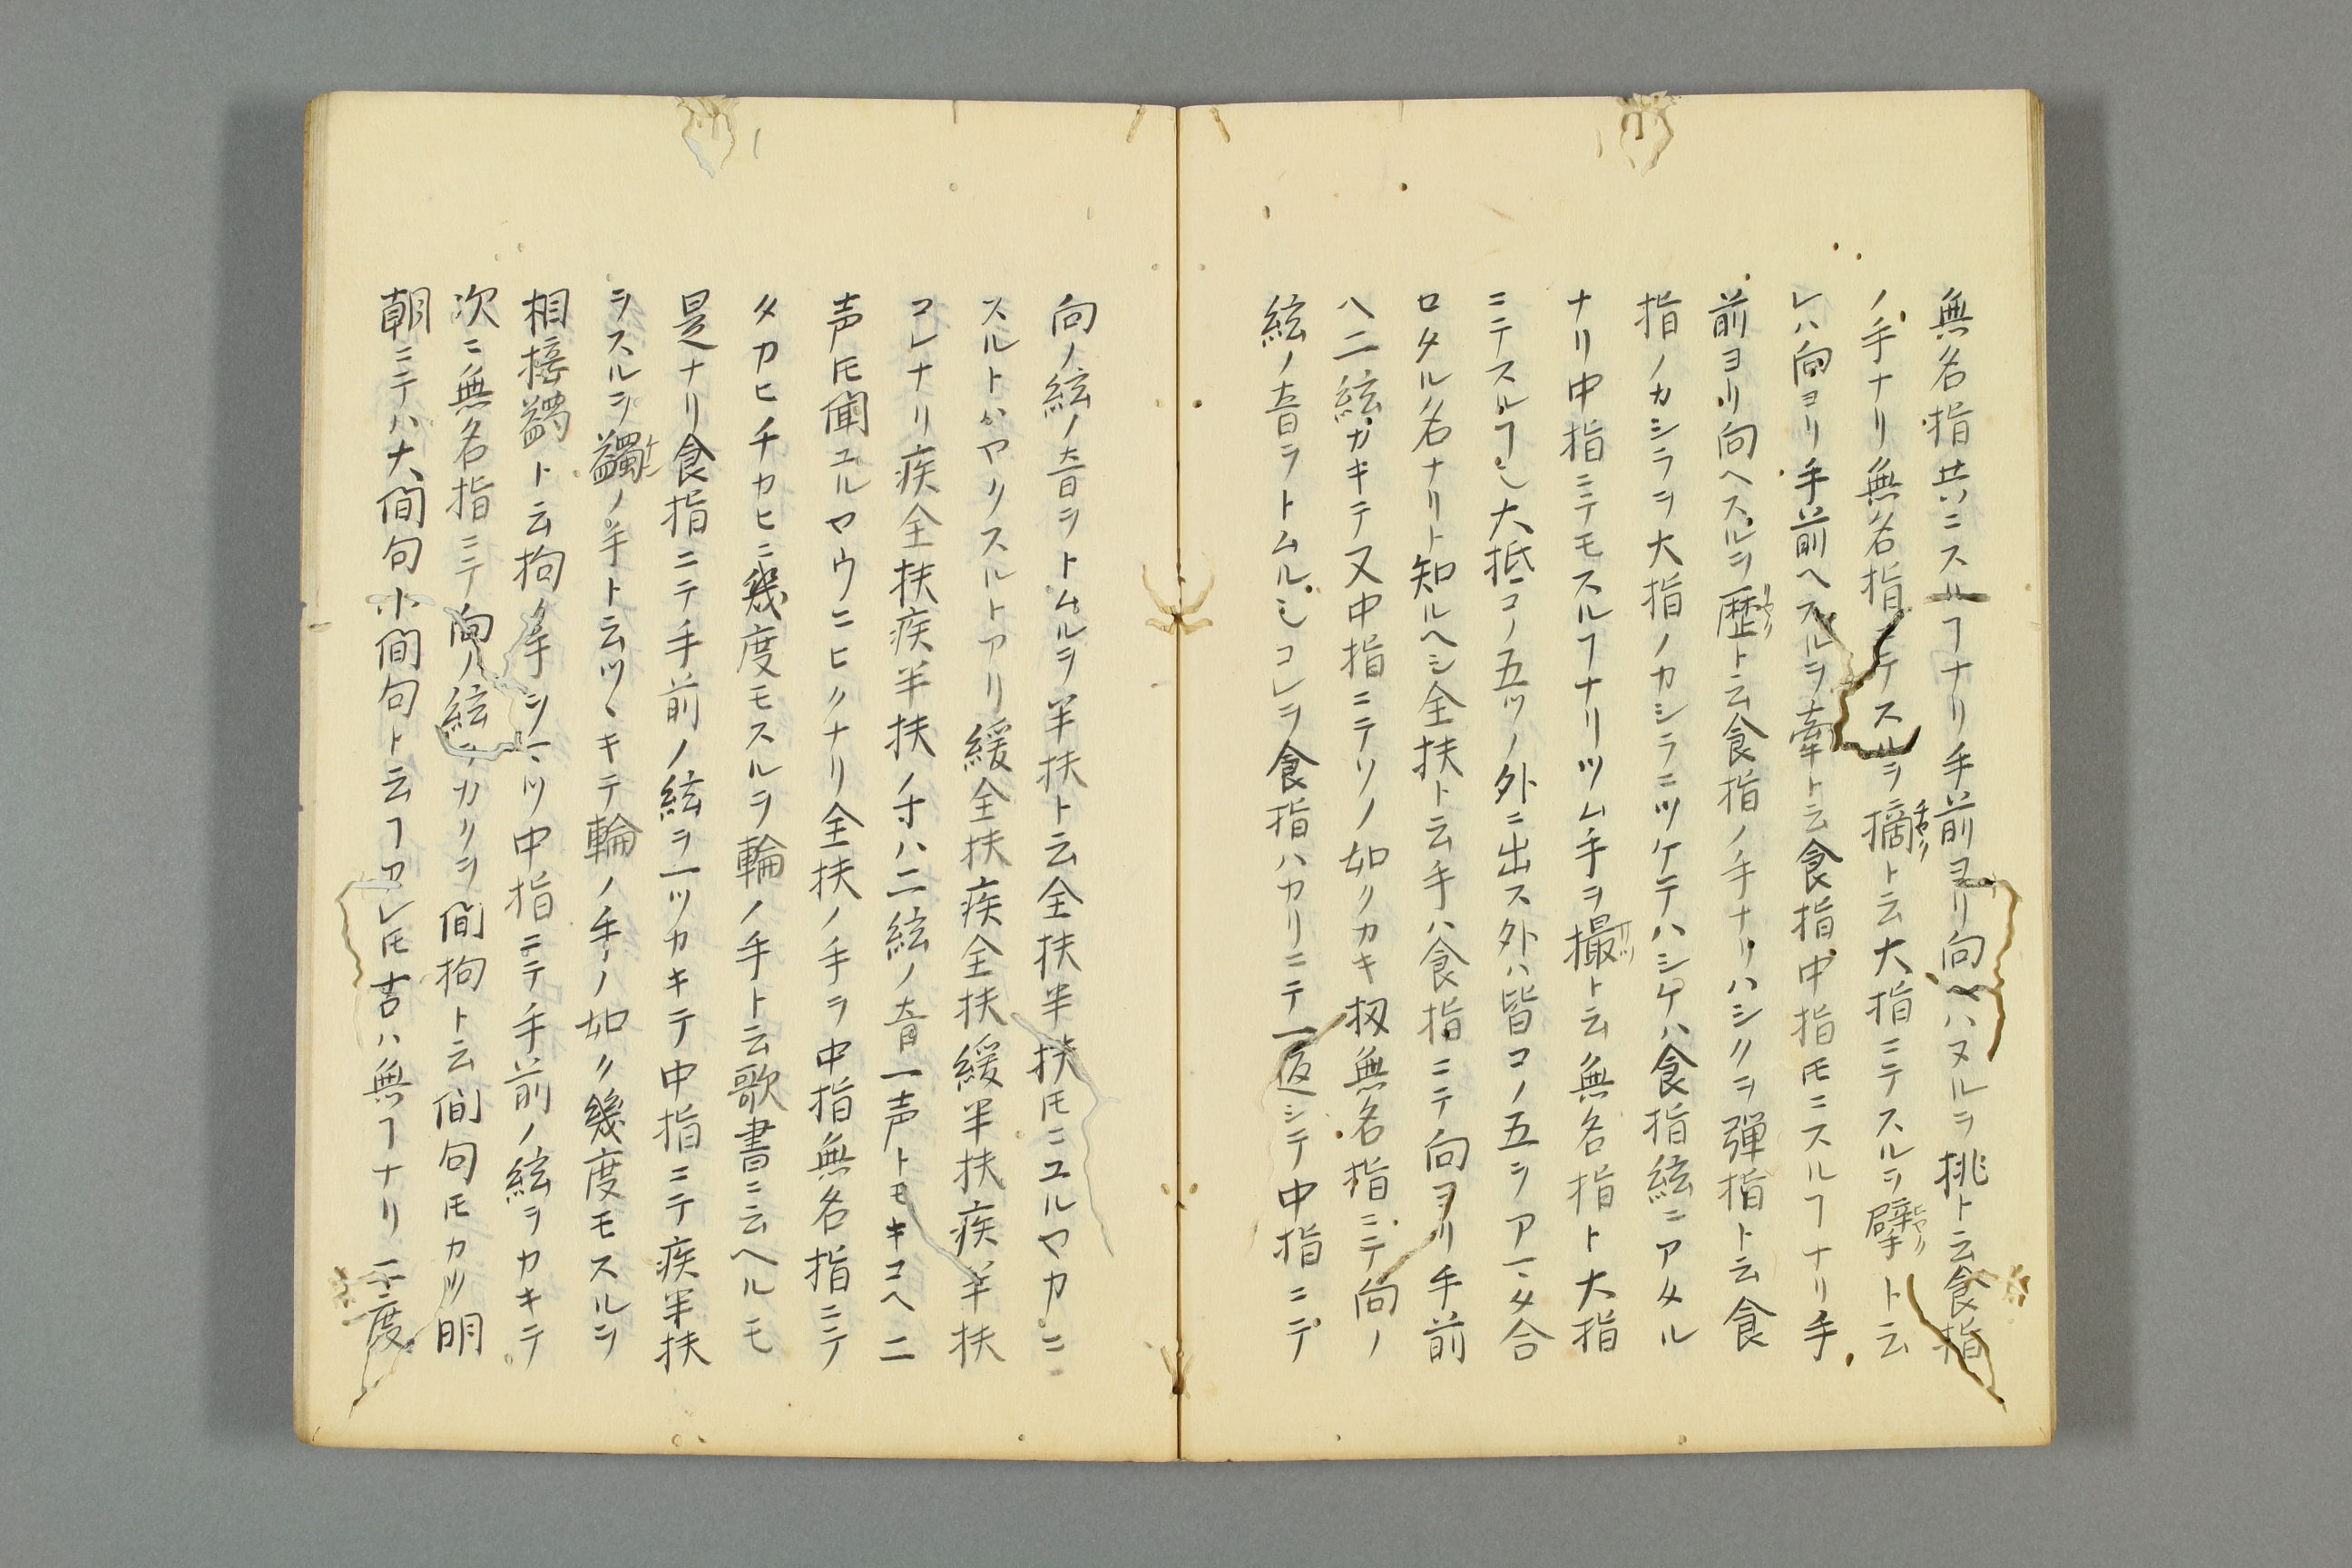 無名指共ニスルヿナリ手前ヨリ向ヘハヌルヲ挑ト云食指
ノ手ナリ無名指ニテスルヲ摘ト云大指ニテスルヲ擘ト云
レハ向ヨリ手前ヘスルヲ牽ト云食指中指𪜈ニスルヿナリ手
前ヨリ向ヘスルヲ歴ト云食指ノ手ナリハシクヲ弾指ト云食
指ノカシラヲ大指ノカシラニツケテハシケハ食指絃ニアタル
ナリ中指ニテモスルヿナリツム手ヲ撮ト云無名指ト大指
ニテスルヿ也大抵コノ五ツノ外ニ出ス外ハ皆コノ五ヲアマタ合
ロタル名ナリト知ルヘシ全扶ト云手ハ食指ニテ向ヨリ手前
ヘ二絃カキテ又中指ニテソノ如クカキ扨無名指ニテ向ノ
絃ノ音ヲトムル也コレヲ食指ハカリニテ一返シテ中指ニテ
向ノ絃ノ音ヲトムルヲ半扶ト云全扶半扶𪜈ニユルヤカニ
スルトハヤクスルトアリ緩全扶疾全扶緩半扶疾半扶
コレナリ疾全扶疾半扶ノ寸ハ二絃ノ音一声トモキコヘ二
声𪜈聞ユルヤウニヒクナリ全扶ノ手ヲ中指無名指ニテ
タカヒチカヒニ幾度モスルヲ輪ノ手ト云歌書ニ云ヘルモ
是ナリ食指ニテ手前ノ絃ヲ一ツカキテ中指ニテ疾半扶
ヲスルヲ蠲ノ手ト云ツヽキテ輪ノ手ノ如ク幾度モスルヲ
相接蠲ト云拘ノ手ヲ一ツ中指ニテ手前ノ絃ヲカキテ
次ニ無名指ニテ向ノ絃ヲカクヲ間拘ト云間句𪜈カツ明
朝ニテハ大間句小間句ト云ヿアレ𪜈古ハ無ヿナリ一度